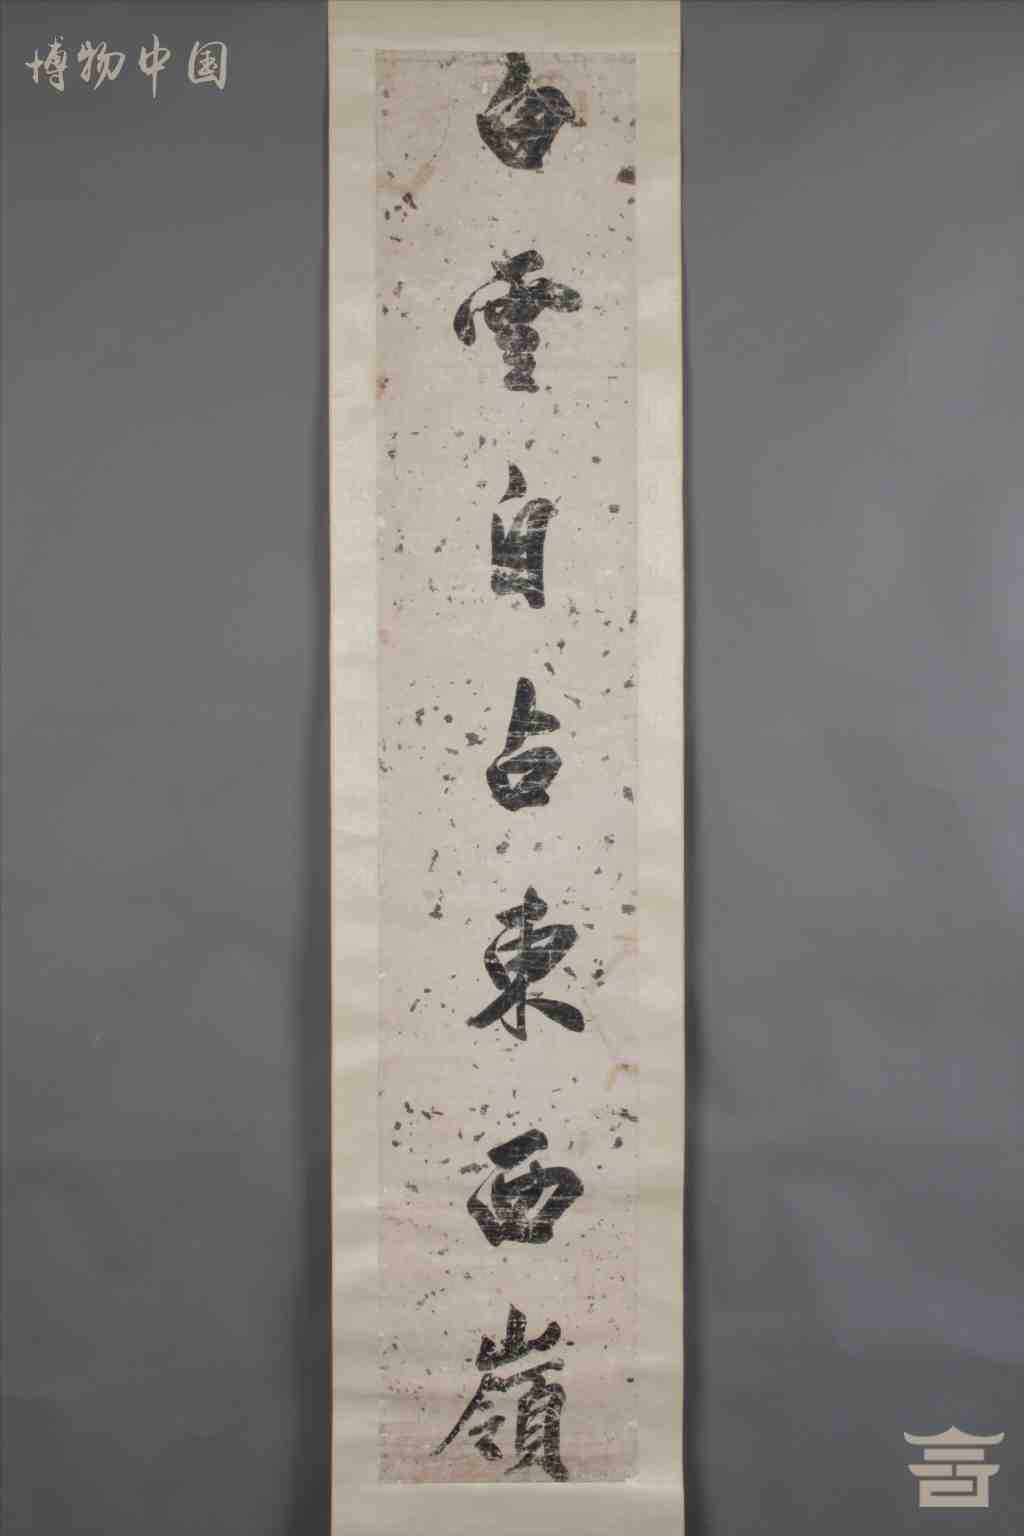 博物中国
白雲自占東西嶺